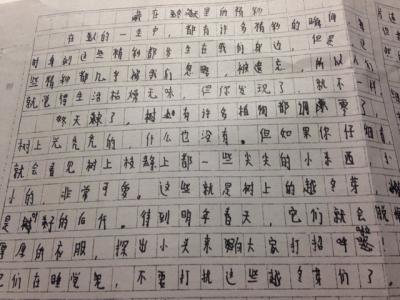 藏在
里的精彩
在我的一生中,都有许多精彩的瞬间
时身的这些精彩都发生在我们身边,但是
些精彩都几乎被我们忽略,被遗忘,所以人们
就觉得生活枯燥无味,但你发现了,就不一样
秋天就了,树如有许多植物都凋零了,
树上光秃秃的,什么也没有。但如果你仔细看,
就会看见树上枝条上都一些尖尖的小东西,小
小的,非常可爱。这些就是树上的越冬芽,
是树的后代。待到明年春天,它们就会脱
厚厚的衣服,探出小头来跟大家打招呼
它们在睡觉呢,不要打扰这些越冬芽们了。